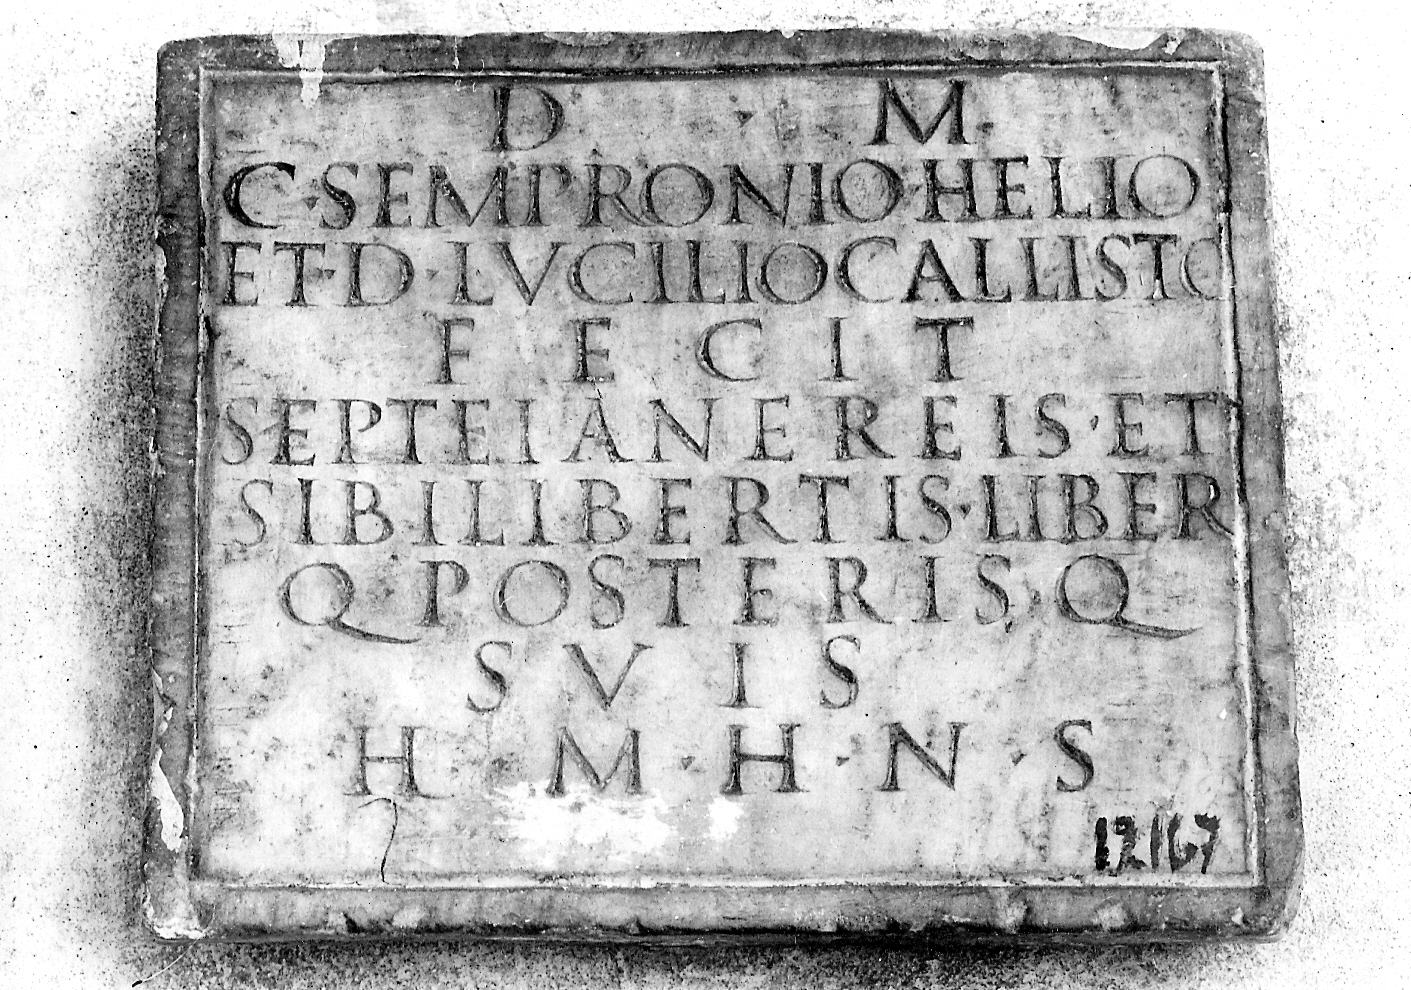 D · M
C · SEMPRONIO · HELIO
ET · D · LVCILIO CALLISTO
FECIT
SEPTEIA NEREIS · ET
SIBI LIBERTIS · LIBER
Q POSTERISQ
SVIS
H · M · H · N · S
12167